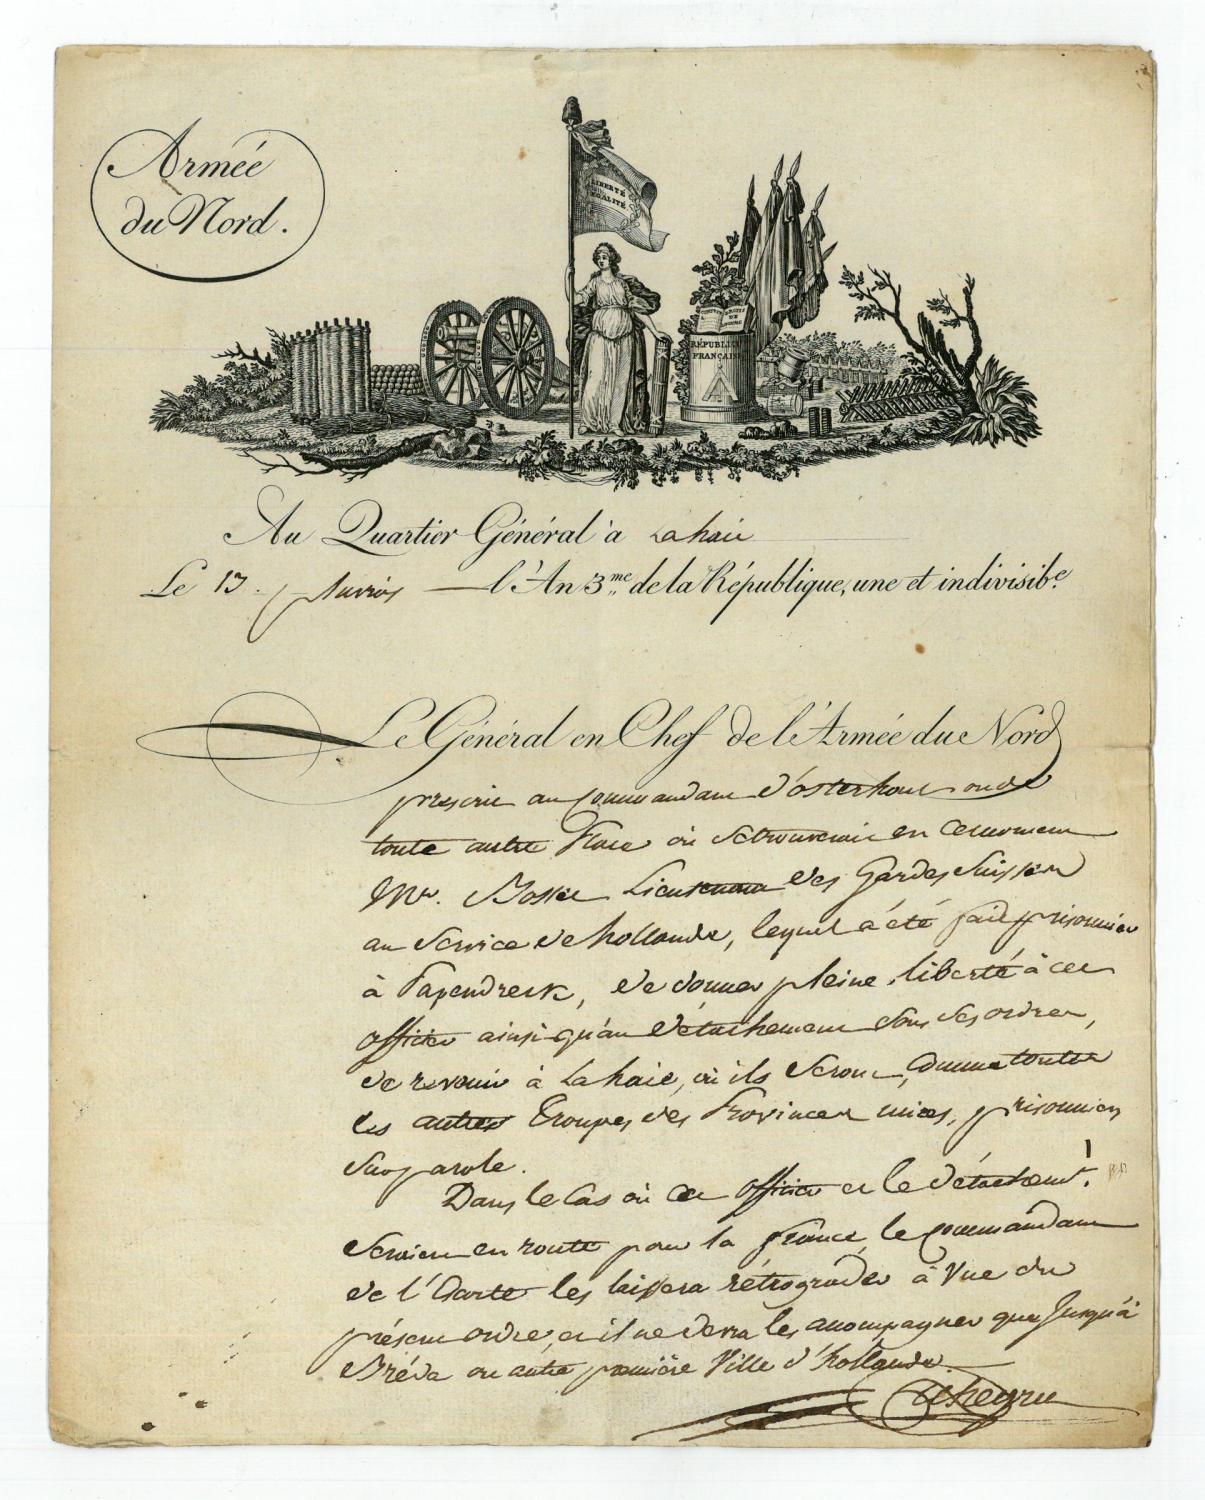 Armée
du Nord.
LIBERTÉ
ÉGALITÉ
DROITS
DE
L'HOMME
RÉPUBLIQUE
FRANÇAISE
Au Quartier Général à La haie
Le 13. pluviôs l'An 3.me de la République, une et indivisib.e
Le Général en Chef de l'Armée du Nord
prescrit au Commandant d'Osterhout ou de
toute autre Place où se trouverait en ce moment
Mr. Lieutenant des Gardes Suisses
au service de hollande, lequel a été fait prisonnier
à Papendreck, de donner pleine liberté à cet
officier ainsi qu'au détachement sous ses ordres,
de revenir à La haie, où ils seront, comme toutes
les autres Troupes des Provinces unies, prisonniers
sur parole.
Dans le Cas où cet officier et le détachemt.
seroient en route pour la france, le commandant
de l'Escorte les laissera rétrograder à Vue du
présent ordre, et il ne devra les accompagner que jusqu'à
Bréda ou autre première Ville d'hollande.
Pichegru